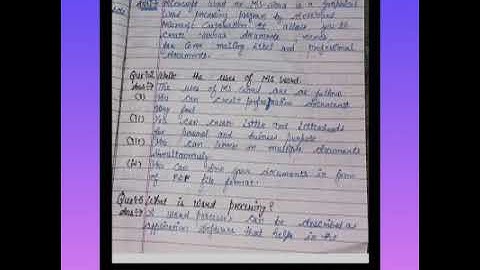 Microsoft word or MS word is a graphical
word processing program by
Microsoft Corporation. It allows you to
create various documents
for cover mailing letter and professional
documents.
Que:2 Write the uses of MS word.
Ans:→ The uses of MS word are as follow
(I) You can create professional documents
very fast.
(II) You can create letter and letterheads
for personal and business purpose
(III) You can work on multiple documents
simultaneously.
(IV) You can your documents in form
of PDF file format.
Que:3 What is word processing?
Ans:→ A word processor can be described as
application software that helps in the